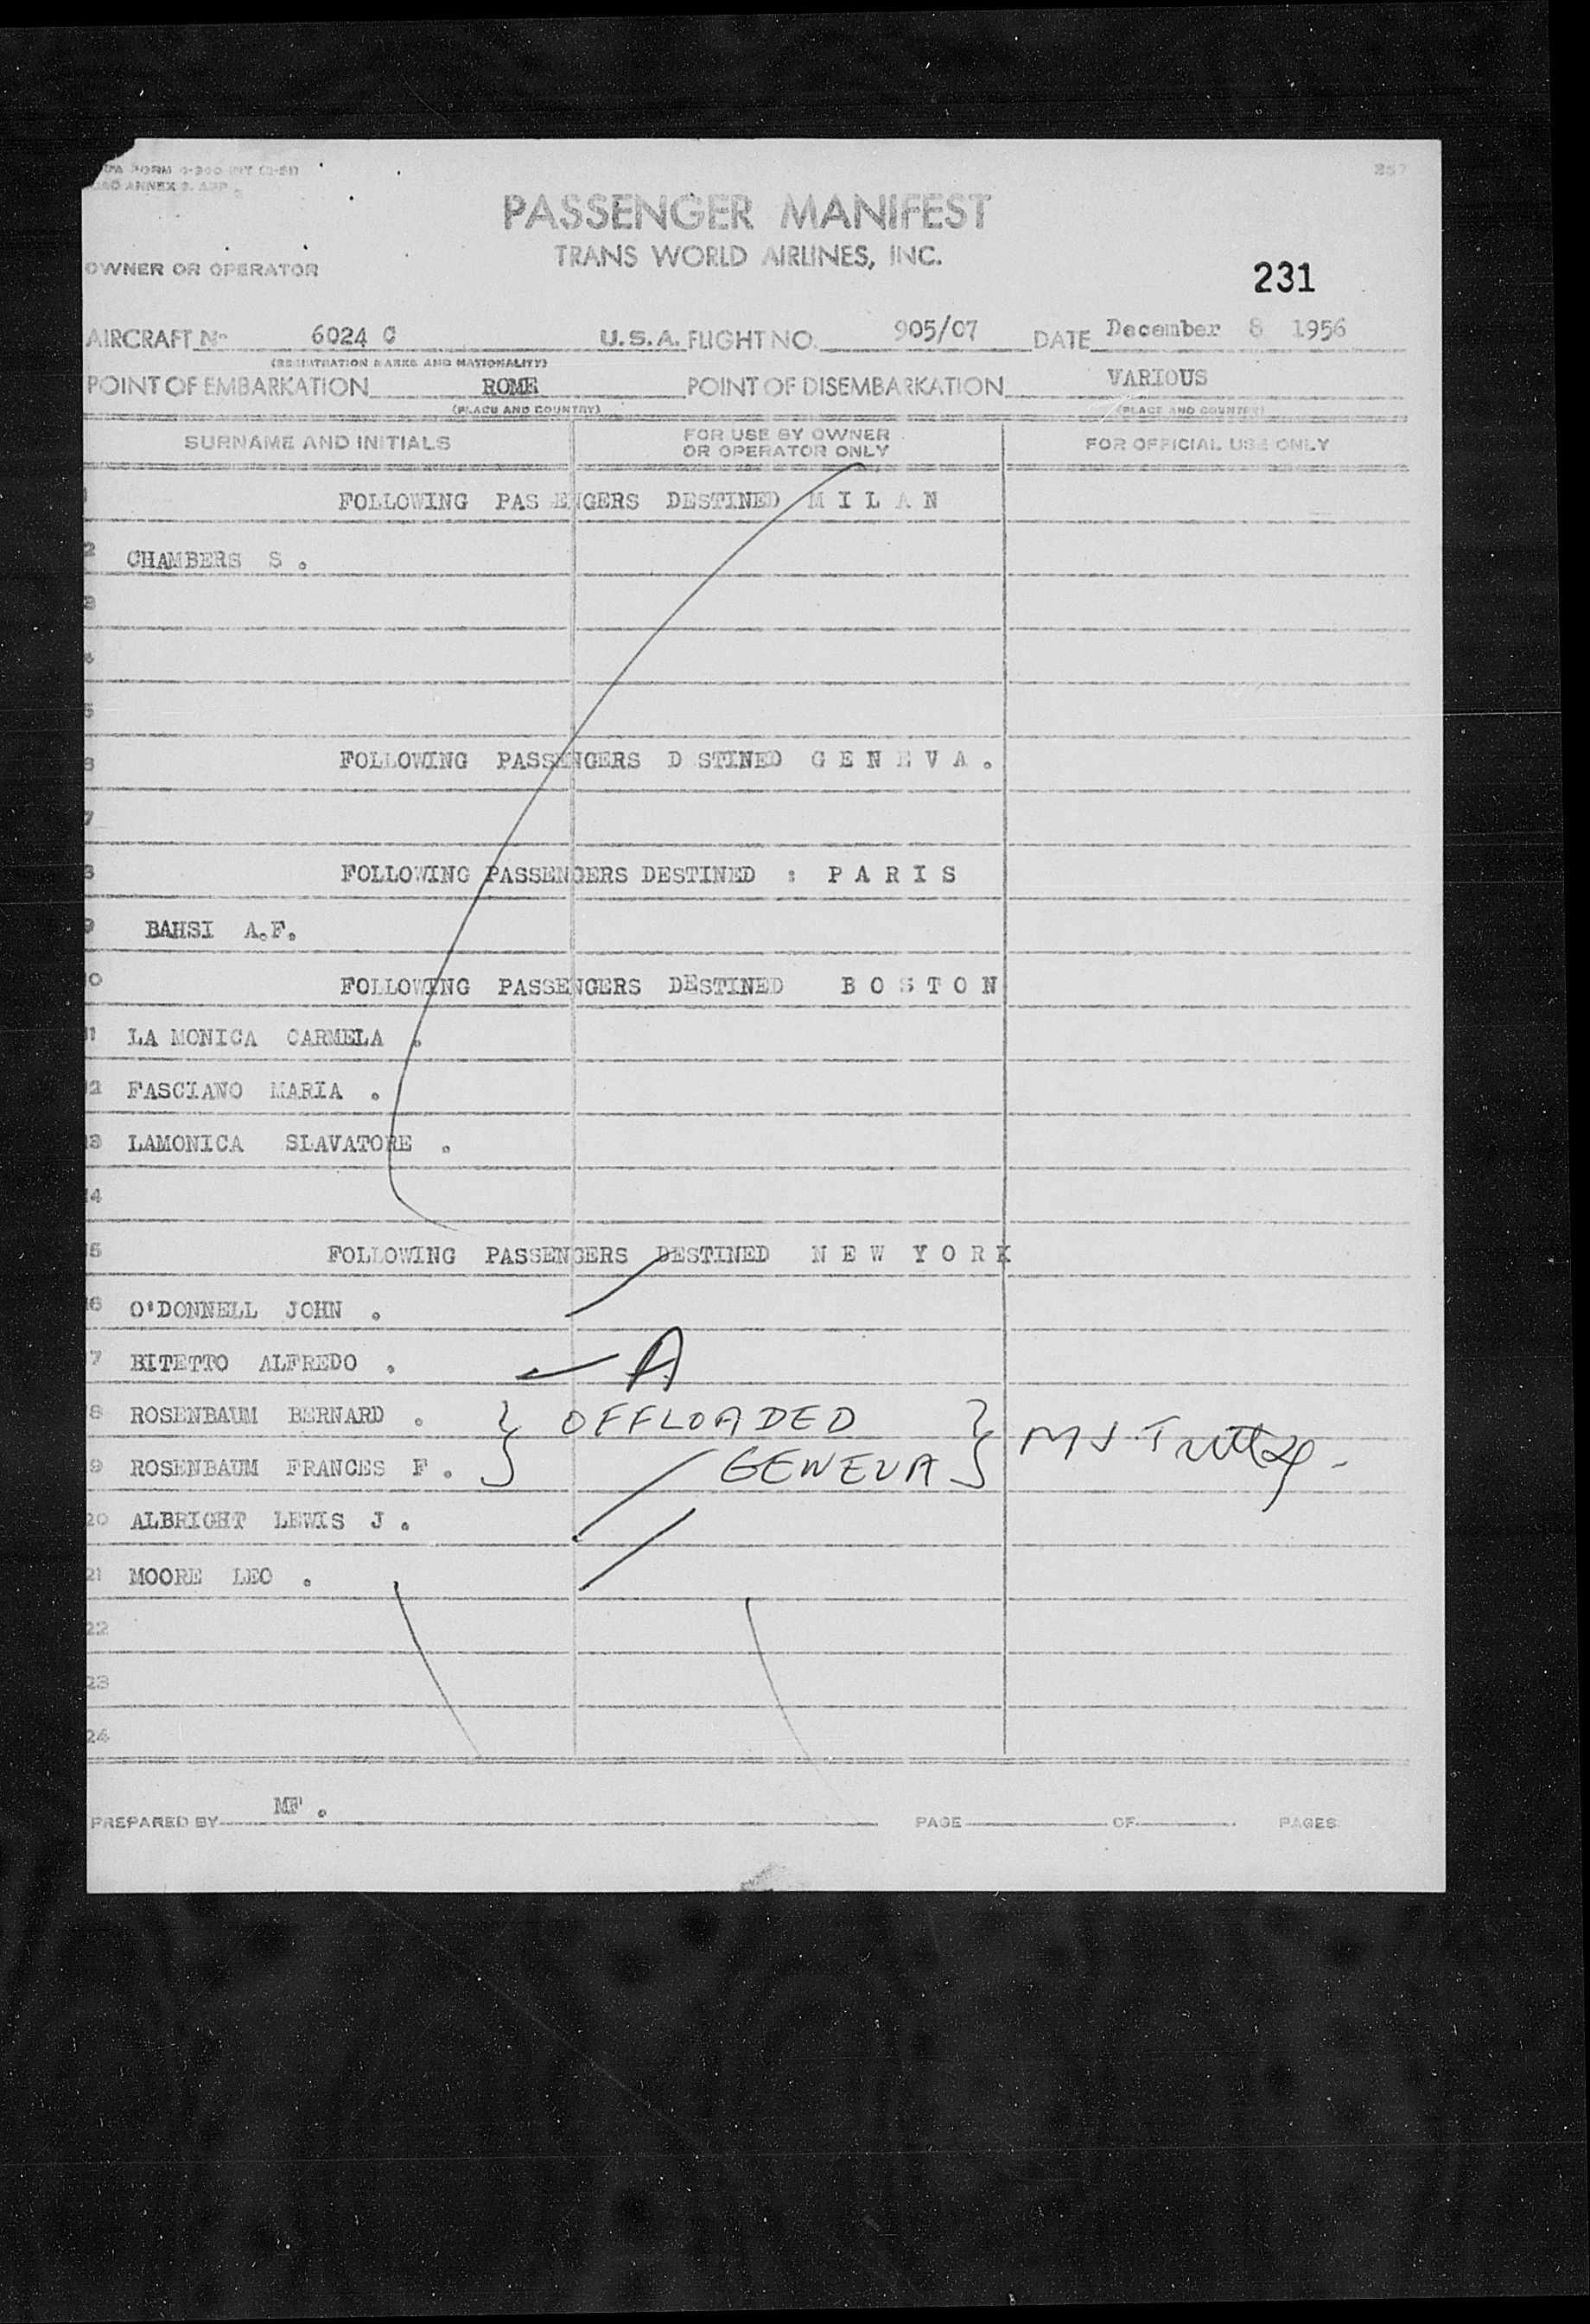 FORM
ANNEX
257
PASSENGER MANIFEST
TRANS WORLD AIRLINES, INC.
OWNER OR OPERATOR
231
AIRCRAFT No 6024 C U.S.A. FLIGHT NO. 905/07 DATE December 8 1956
(REGISTRATION MARKS AND NATIONALITY)
POINT OF EMBARKATION ROME POINT OF DISEMBARKATION VARIOUS
(PLACE AND COUNTRY) (PLACE AND COUNTRY)
SURNAME AND INITIALS FOR USE BY OWNER OR OPERATOR ONLY FOR OFFICIAL USE ONLY
1 FOLLOWING PAS ENGERS DESTINED M I L A N
2 CHAMBERS S .
3
4
5
6 FOLLOWING PASSENGERS D STINED G E N E V A .
7
8 FOLLOWING PASSENGERS DESTINED : P A R I S
9 BAHSI A.F.
10 FOLLOWING PASSENGERS DESTINED B O S T O N
11 LA MONICA CARMELA .
12 FASCIANO MARIA .
13 LAMONICA SLAVATORE .
14
15 FOLLOWING PASSENGERS DESTINED N E W Y O R K
16 O'DONNELL JOHN .
17 BITETTO ALFREDO . A
18 ROSENBAUM BERNARD . } OFFLOADED }
19 ROSENBAUM FRANCES F . } GENEVA }
20 ALBRIGHT LEWIS J .
21 MOORE LEO .
22
23
24
PREPARED BY MF . PAGE OF PAGES